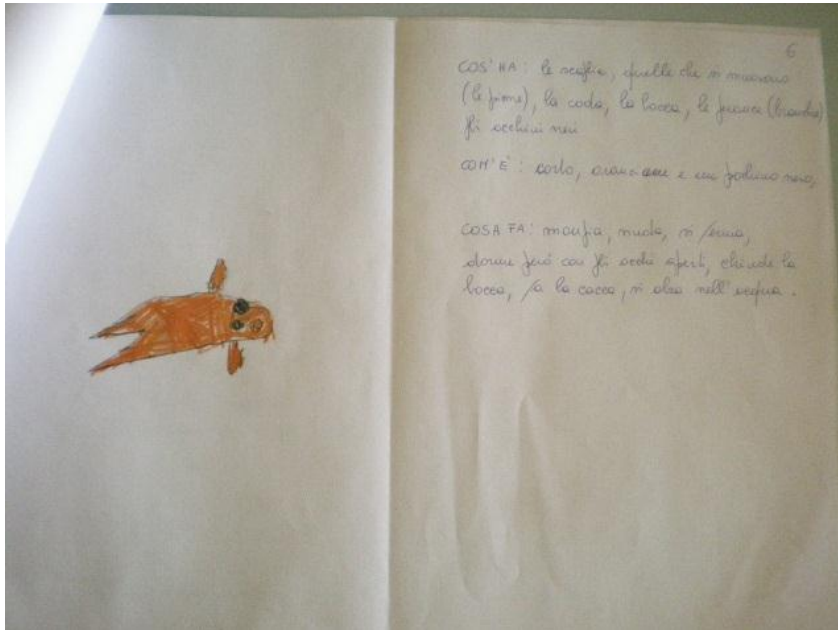 6
COS'HA: le scaglie, quelle che si muovono
(le pinne), la coda, la bocca, le (branchie)
gli occhini neri
COM'È: corto, arancione e un pochino nero,
COSA FA: mangia, nuota, si ferma,
dorme però con gli occhi aperti, chiude la
bocca, fa la cacca, si alza nell'acqua.